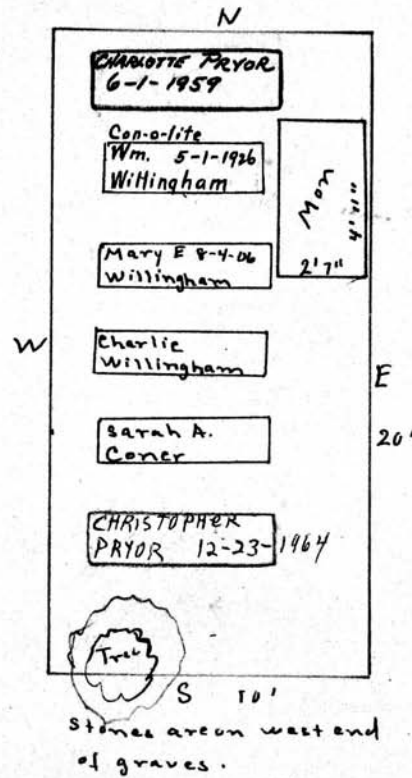 N
CHARLOTTE PRYOR
6-1-1959
Con-o-lite
Wm. 5-1-1926
Willingham
Mon
4'11"
2'7"
Mary E 8-4-06
Willingham
W
Charlie
Willingham
E
20'
Sarah A.
Coner
CHRISTOPHER
PRYOR 12-23-1964
Tree
S 10'
Stones are on west end
of graves.